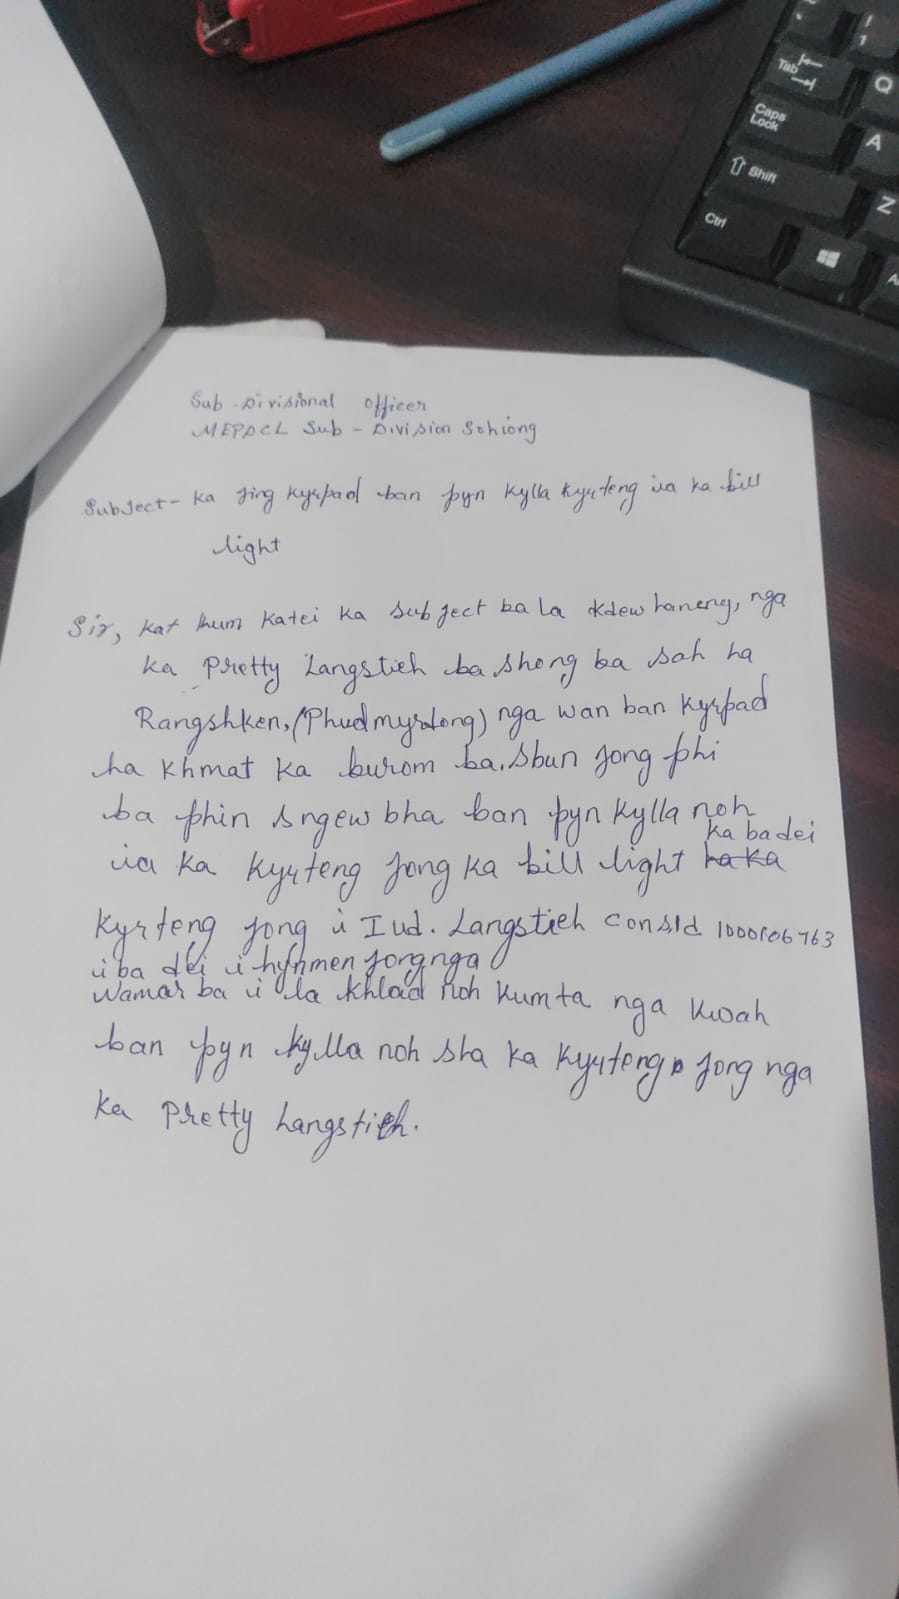 Sub-Divisional Officer
MEPDCL Sub-Division Sohiong
Subject- Ka Jing kyrpad ban pyn kylla kyrteng ia ka bill
light
Sir, Kat kum katei ka subject ba la kdew haneng, nga
ka Pretty Langstieh ba shong ba sah ha
Rangshken, (Phudmyrdong) nga wan ban kyrpad
ha khmat ka burom ba, Sbun jong phi
ba phin sngew bha ban pyn kylla noh
ka ba dei
ia ka kyrteng jong ka bill light ha ka
kyrteng jong u Iud. Langstieh ConsId 1000106763
u ba dei u hynmen jong nga
Namar ba u la khlad noh kumta nga kwah
ban pyn kylla noh sha ka kyrteng jong nga
ka Pretty Langstieh.
Tab
Caps Lock
Shift
Ctrl
Q
A
Z